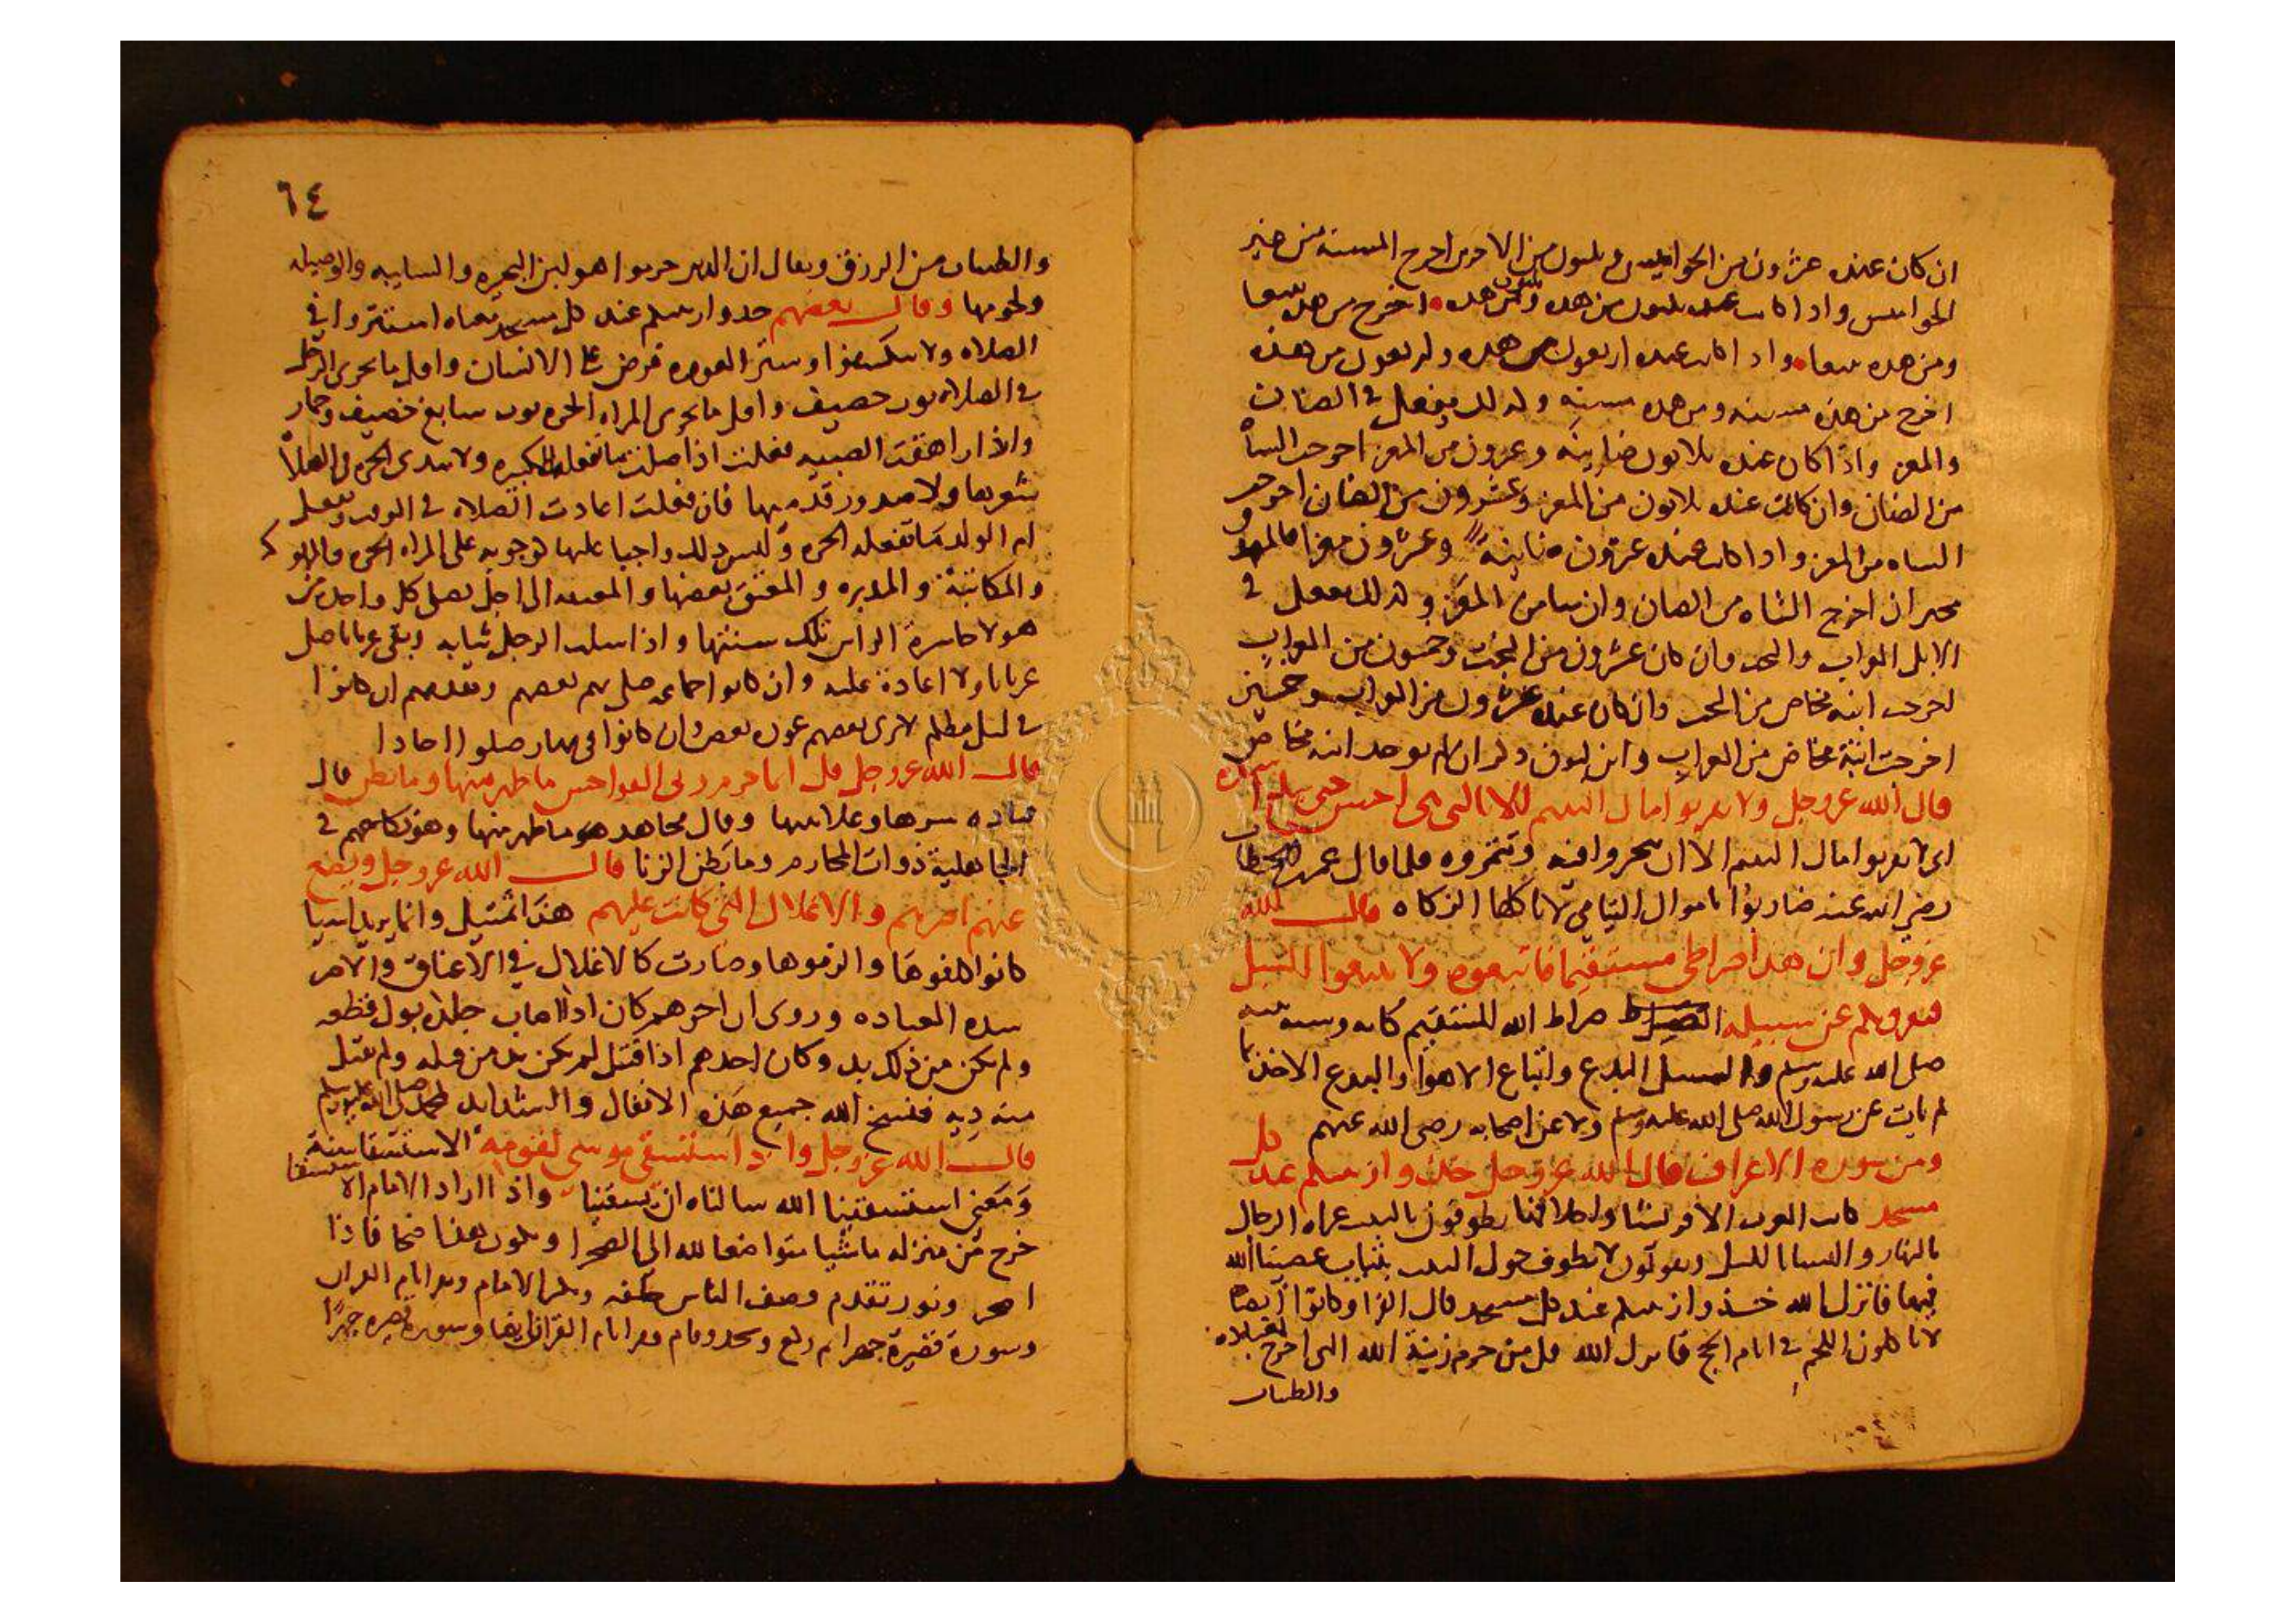 ان كان عنده عشرون من الجواميس و ثلثون من الاخرى اخرج المسنة من حيز
الجواميس واذا كانت عنده ثلثون من هذه وثلثون من هذه اخرج من هذه تبيعا
ومن هذه تبيعا واذا كانت عنده اربعون من هذه واربعون من هذه
اخرج من هذه مسنه ومن هذه مسنه وكذلك يفعل في الضان
والمعز واذا كان عنده ثلاثون ضاينة وعشرون من المعز اخرجت الشاة
من الضان وان كانت عنده ثلاثون من المعز وعشرون من الضان اخرجت
الشاه من المعز واذا كانت عنده عشرون ضاينة وعشرون معزا فالمصدق
مخير ان اخرج الشاه من الضان وان شا من المعز وكذلك يفعل في
الابل العراب والبخت فان كان عشرون من البخت وخمسون من العراب
اخرجت ابنة مخاض من البخت وان كان عنده عشرون من العراب وخمسين
اخرجت ابنة مخاض من العراب وابن لبون ذكر ان لم توجد ابنة مخاض
قال الله عز وجل ولا تقربوا مال اليتيم الا بالتي هي احسن حتى يبلغ اشده
اى لا تقربوا مال اليتيم الا ان تتجروا فيه وتثمروه فلما قال عمر بن الخطاب
رضي الله عنه ضاربوا باموال اليتامي لا تاكلها الزكاه قال الله
عز وجل وان هذا صراطي مستقيما فاتبعوه ولا تتبعوا السبل
فتفرق بكم عن سبيله صراط الله المستقيم كتابه وسنة نبيه
صلى الله عليه وسلم والسبل البدع واتباع الاهوا والبدع الاخذ بما
لم يات عن رسول الله صلى الله عليه وسلم ولا عن اصحابه رضى الله عنهم
ومن سورة الاعراف قال الله عز وجل خذوا زينتكم عند كل
مسجد كانت العرب الا قريشا واحلافها يطوفون بالبيت عراه الرجال
بالنهار والنسا بالليل ويقولون لا نطوف حول البيت بثياب عصينا الله
فيها فانزل الله خذوا زينتكم عند كل مسجد قال الفرا وكانوا ايضا
لا ياكلون اللحم في ايام الحج فانزل الله قل من حرم زينة الله التى اخرج لعباده
والطيبات
٦٤
والطيبات من الرزق ويقال ان الذى حرموا هو لبن البحيره والسايبه والوصيله
ولحومها وقال بعضهم خذوا زينتكم عند كل مسجد معناه استتروا في
الصلاه ولا تنكشفوا وستر العوره فرض على الانسان واقل ما يجزى الرجل
في الصلاة ثوب خصيف واقل ما يجزى المراه الحره ثوب سابغ خصيف وخمار
واذا راهقت الصبيه فعلت اذا صلت ما تفعله الكبيره ولا تبدى الحره في الصلاة
شعرها ولا صدور قدميها فان فعلت اعادت الصلاة في الوقت وتفعل
ام الولد ما تفعله الحره وليس ذلك واجبا عليها كوجوبه على المراه الحره والمملوكه
والمكاتبة والمدبره والمعتق بعضها والمعتقه الى اجل تصلى كل واحده من
هولا حاسرة الراس تلك سنتها واذا سلب الرجل ثيابه وبقى عريانا صلى
عريانا ولا اعادة عليه وان كانوا جماعه صلى بهم بعضهم وتقدمهم ان كانوا
في ليل مظلم لا يرى بعضهم عورة بعض وان كانوا في نهار صلوا احادا
قال الله عز وجل قل انما حرم ربى الفواحش ما ظهر منها وما بطن قال
قتاده سرها وعلانيتها وقال مجاهد هو ما ظهر منها وهو نكاحهم في
الجاهلية ذوات المحارم وما بطن الزنا قال الله عز وجل ويضع
عنهم اصرهم والاغلال التي كانت عليهم هذا تمثيل وانما يريد اشيا
كانوا كلفوها والزموها وصارت كالاغلال في الاعناق والاصر
شدة العباده وروى ان احدهم كان اذا اصاب جلده بول قطعه
ولم يكن من ذلك بد وكان احدهم اذا قتل لم يكن بد من قتله ولم تقبل
منه ديه فنسخ الله جميع هذه الاثقال والشدايد لمحمد صلى الله عليه وسلم
قال الله عز وجل واذ استسقى موسى لقومه الاستسقا سنة
ومعنى استسقينا الله سالناه ان يسقينا واذا اراد الامام الاستسقا
خرج من منزله ماشيا متواضعا لله الى الصحرا ويكون هذا ضحا فاذا
وصف الناس خلفه وكبر الامام وقرا بام القران
وسورة قصيرة جهرا ثم ركع وسجد وقام وقرا بام القران ايضا وسورة قصيره جهرا